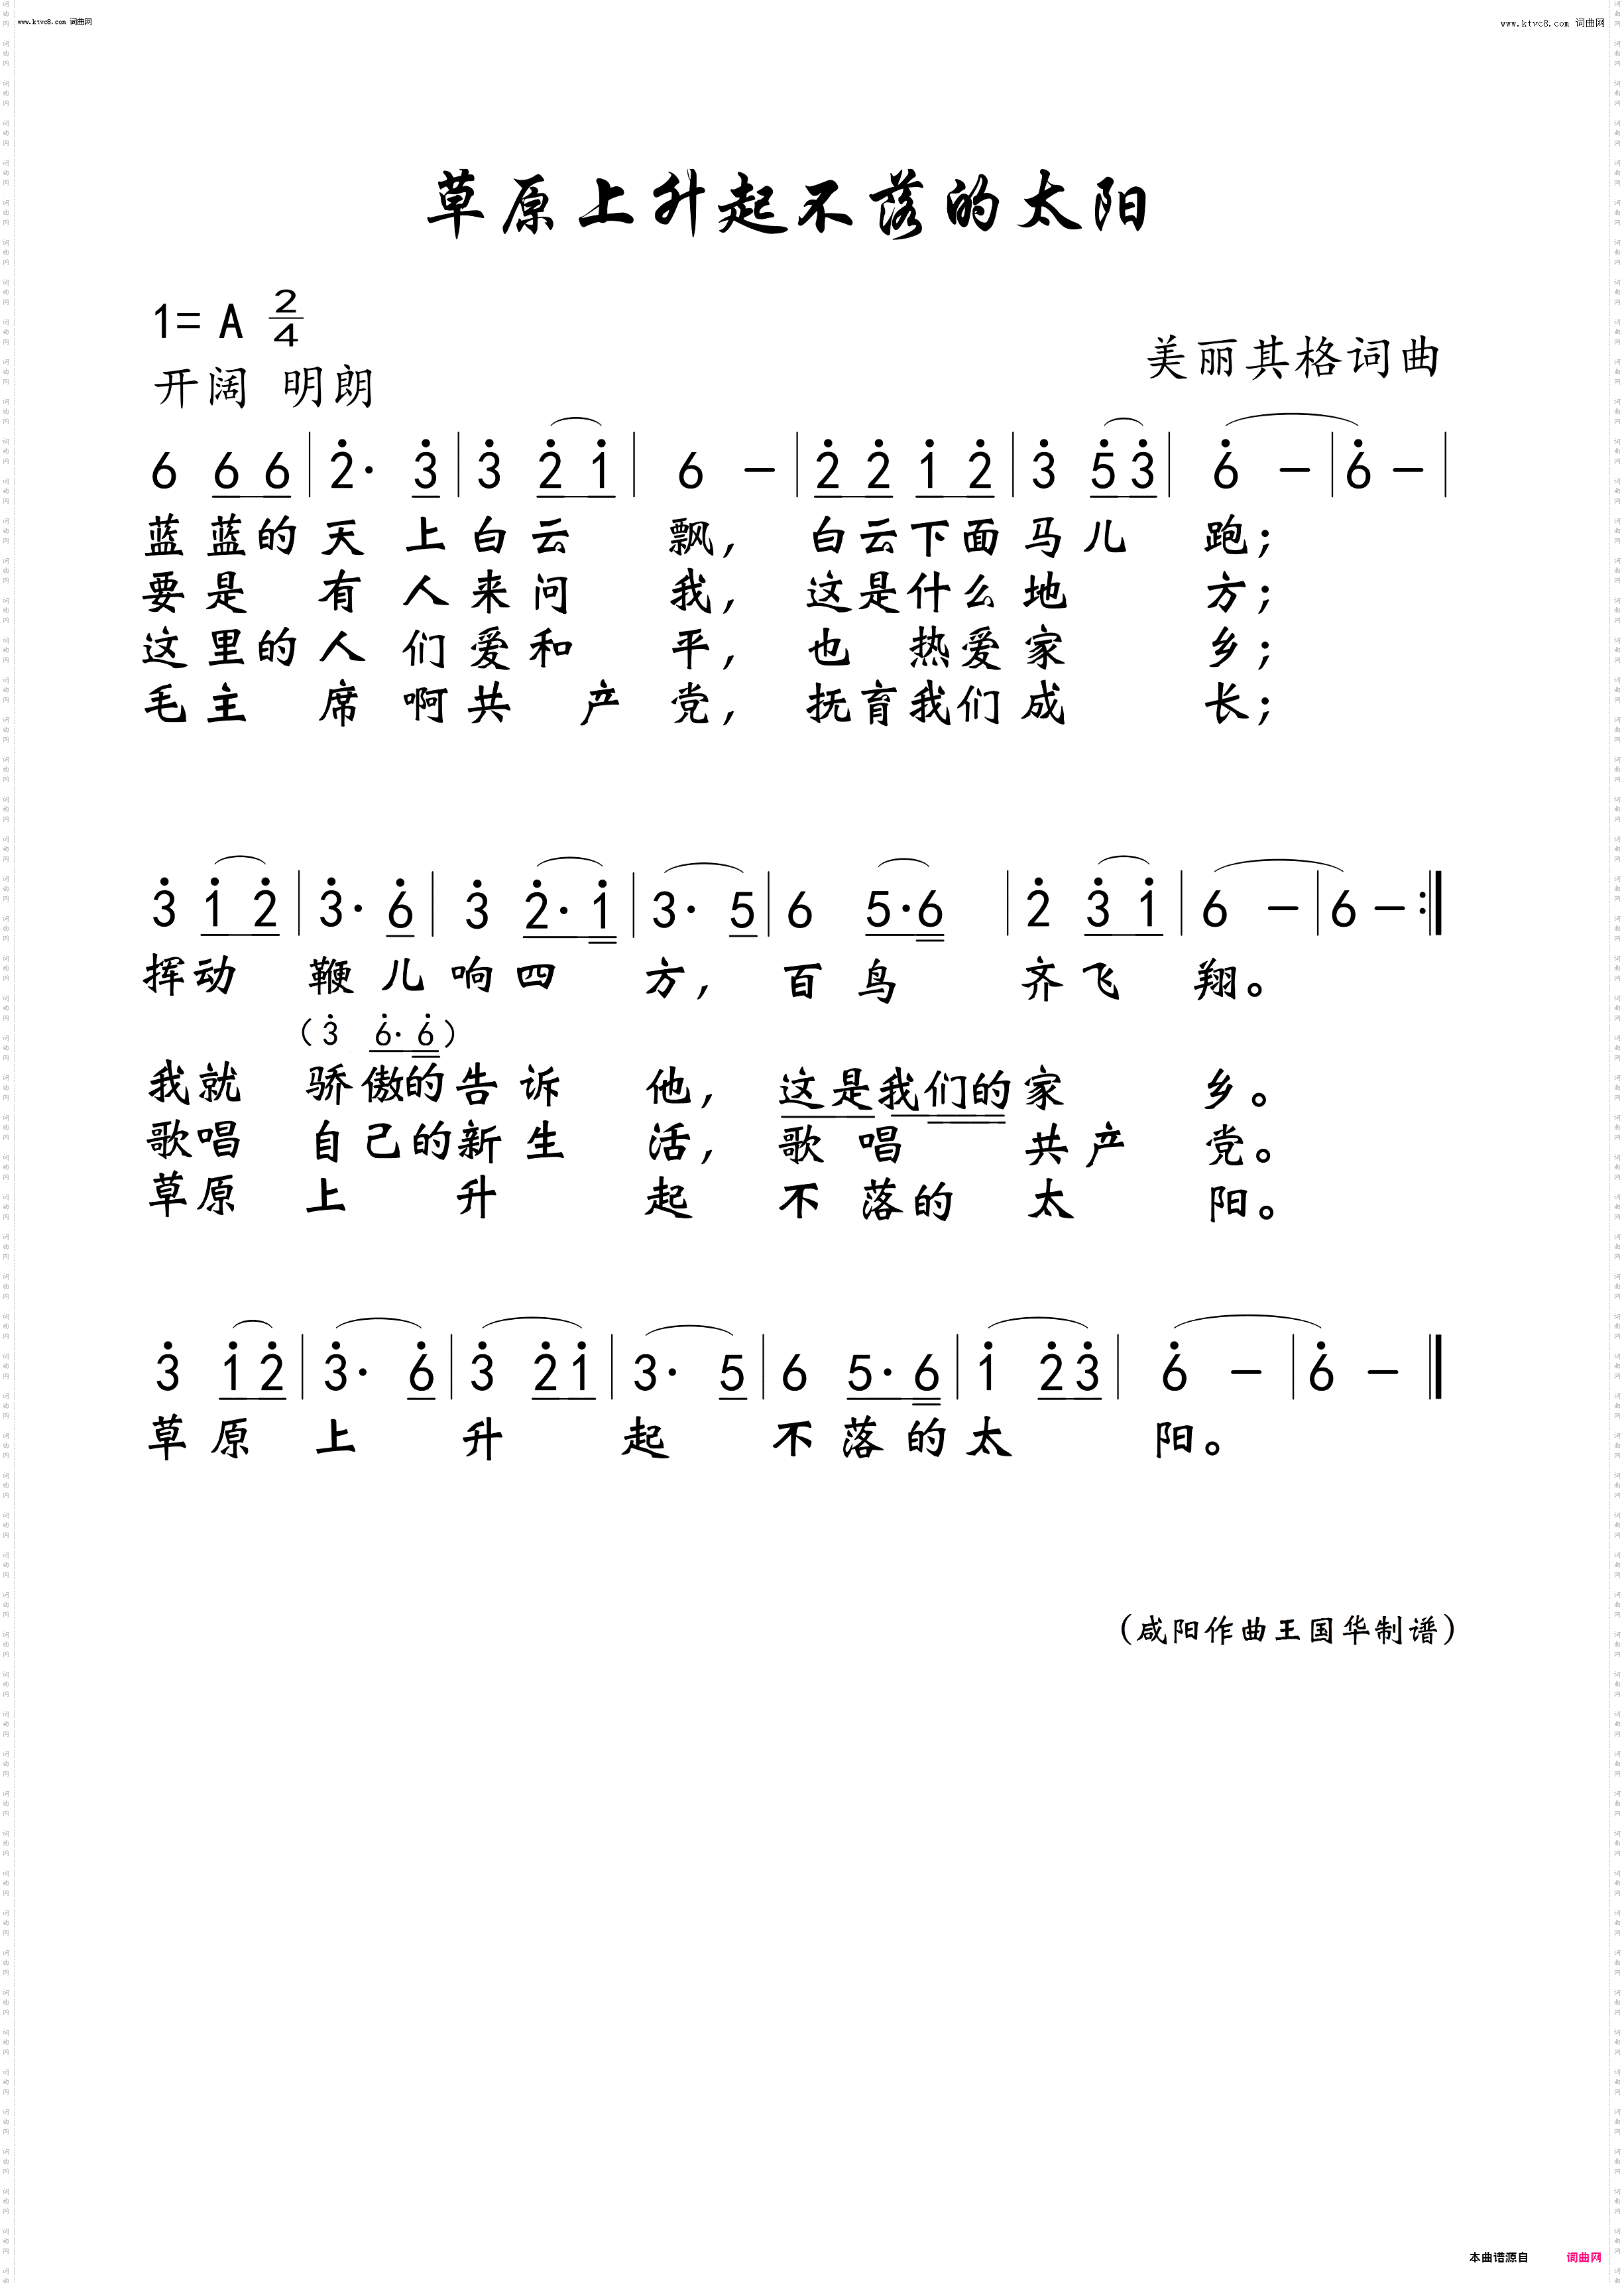 www.ktvc8.com 词曲网
www.ktvc8.com 词曲网
草原上升起不落的太阳
1= A 2/4
美丽其格词曲
开阔 明朗
6 6 6 | 2̇· 3̇ | 3̇ 2̇ 1̇ | 6 － | 2̇ 2̇ 1̇ 2̇ | 3̇ 5̇ 3̇ | 6̇ － | 6̇ － |
蓝 蓝的 天 上 白 云 飘， 白云下面 马 儿 跑；
要 是 有 人 来 问 我， 这是什么 地 方；
这 里的 人 们 爱 和 平， 也 热爱家 乡；
毛 主 席 啊 共 产 党， 抚育我们 成 长；
3̇ 1̇ 2̇ | 3̇· 6̇ | 3̇ 2̇· 1̇ | 3· 5 | 6 5·6 | 2̇ 3̇ 1̇ | 6 － | 6 － :‖
挥动 鞭 儿 响 四 方， 百 鸟 齐 飞 翔。
（3̇ 6̇· 6̇）
我就 骄 傲的 告 诉 他， 这是我们的 家 乡。
歌唱 自 己的 新 生 活， 歌 唱 共 产 党。
草原 上 升 起 不 落的 太 阳。
3̇ 1̇ 2̇ | 3̇· 6̇ | 3̇ 2̇ 1̇ | 3· 5 | 6 5· 6 | 1̇ 2̇ 3̇ | 6̇ － | 6̇ － ‖
草 原 上 升 起 不 落 的 太 阳。
（咸阳作曲王国华制谱）
本曲谱源自 词曲网